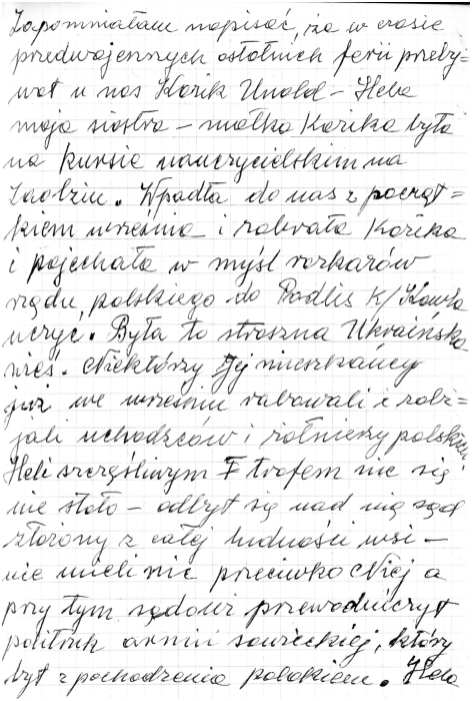 Zapomniałam napisać, iż w czasie
przedwojennych ostatnich ferii przeby=
wał u nas Kazik Unold – Hela
moja siostra – matka Kazika była
na kursie nauczycielskim na
Zaolziu. Wpadła do nas z począt=
kiem września i zabrała Kazika
i pojechała w myśl rozkazów
rządu polskiego do Podlis k/Kowla
uczyć. Była to straszna Ukraińska
wieś. Niektórzy Jej mieszkańcy
już we wrześniu rabowali i zabi=
jali uchodźców i żołnierzy polskich
Heli szczęśliwym trafem nic się
nie stało – odbył się nad nią sąd
złożony z całej ludności wsi –
nie mieli nic przeciwko Niej a
przy tym sądowi przewodniczył
politruk armii sowieckiej, który
był z pochodzenia polakiem. Hela